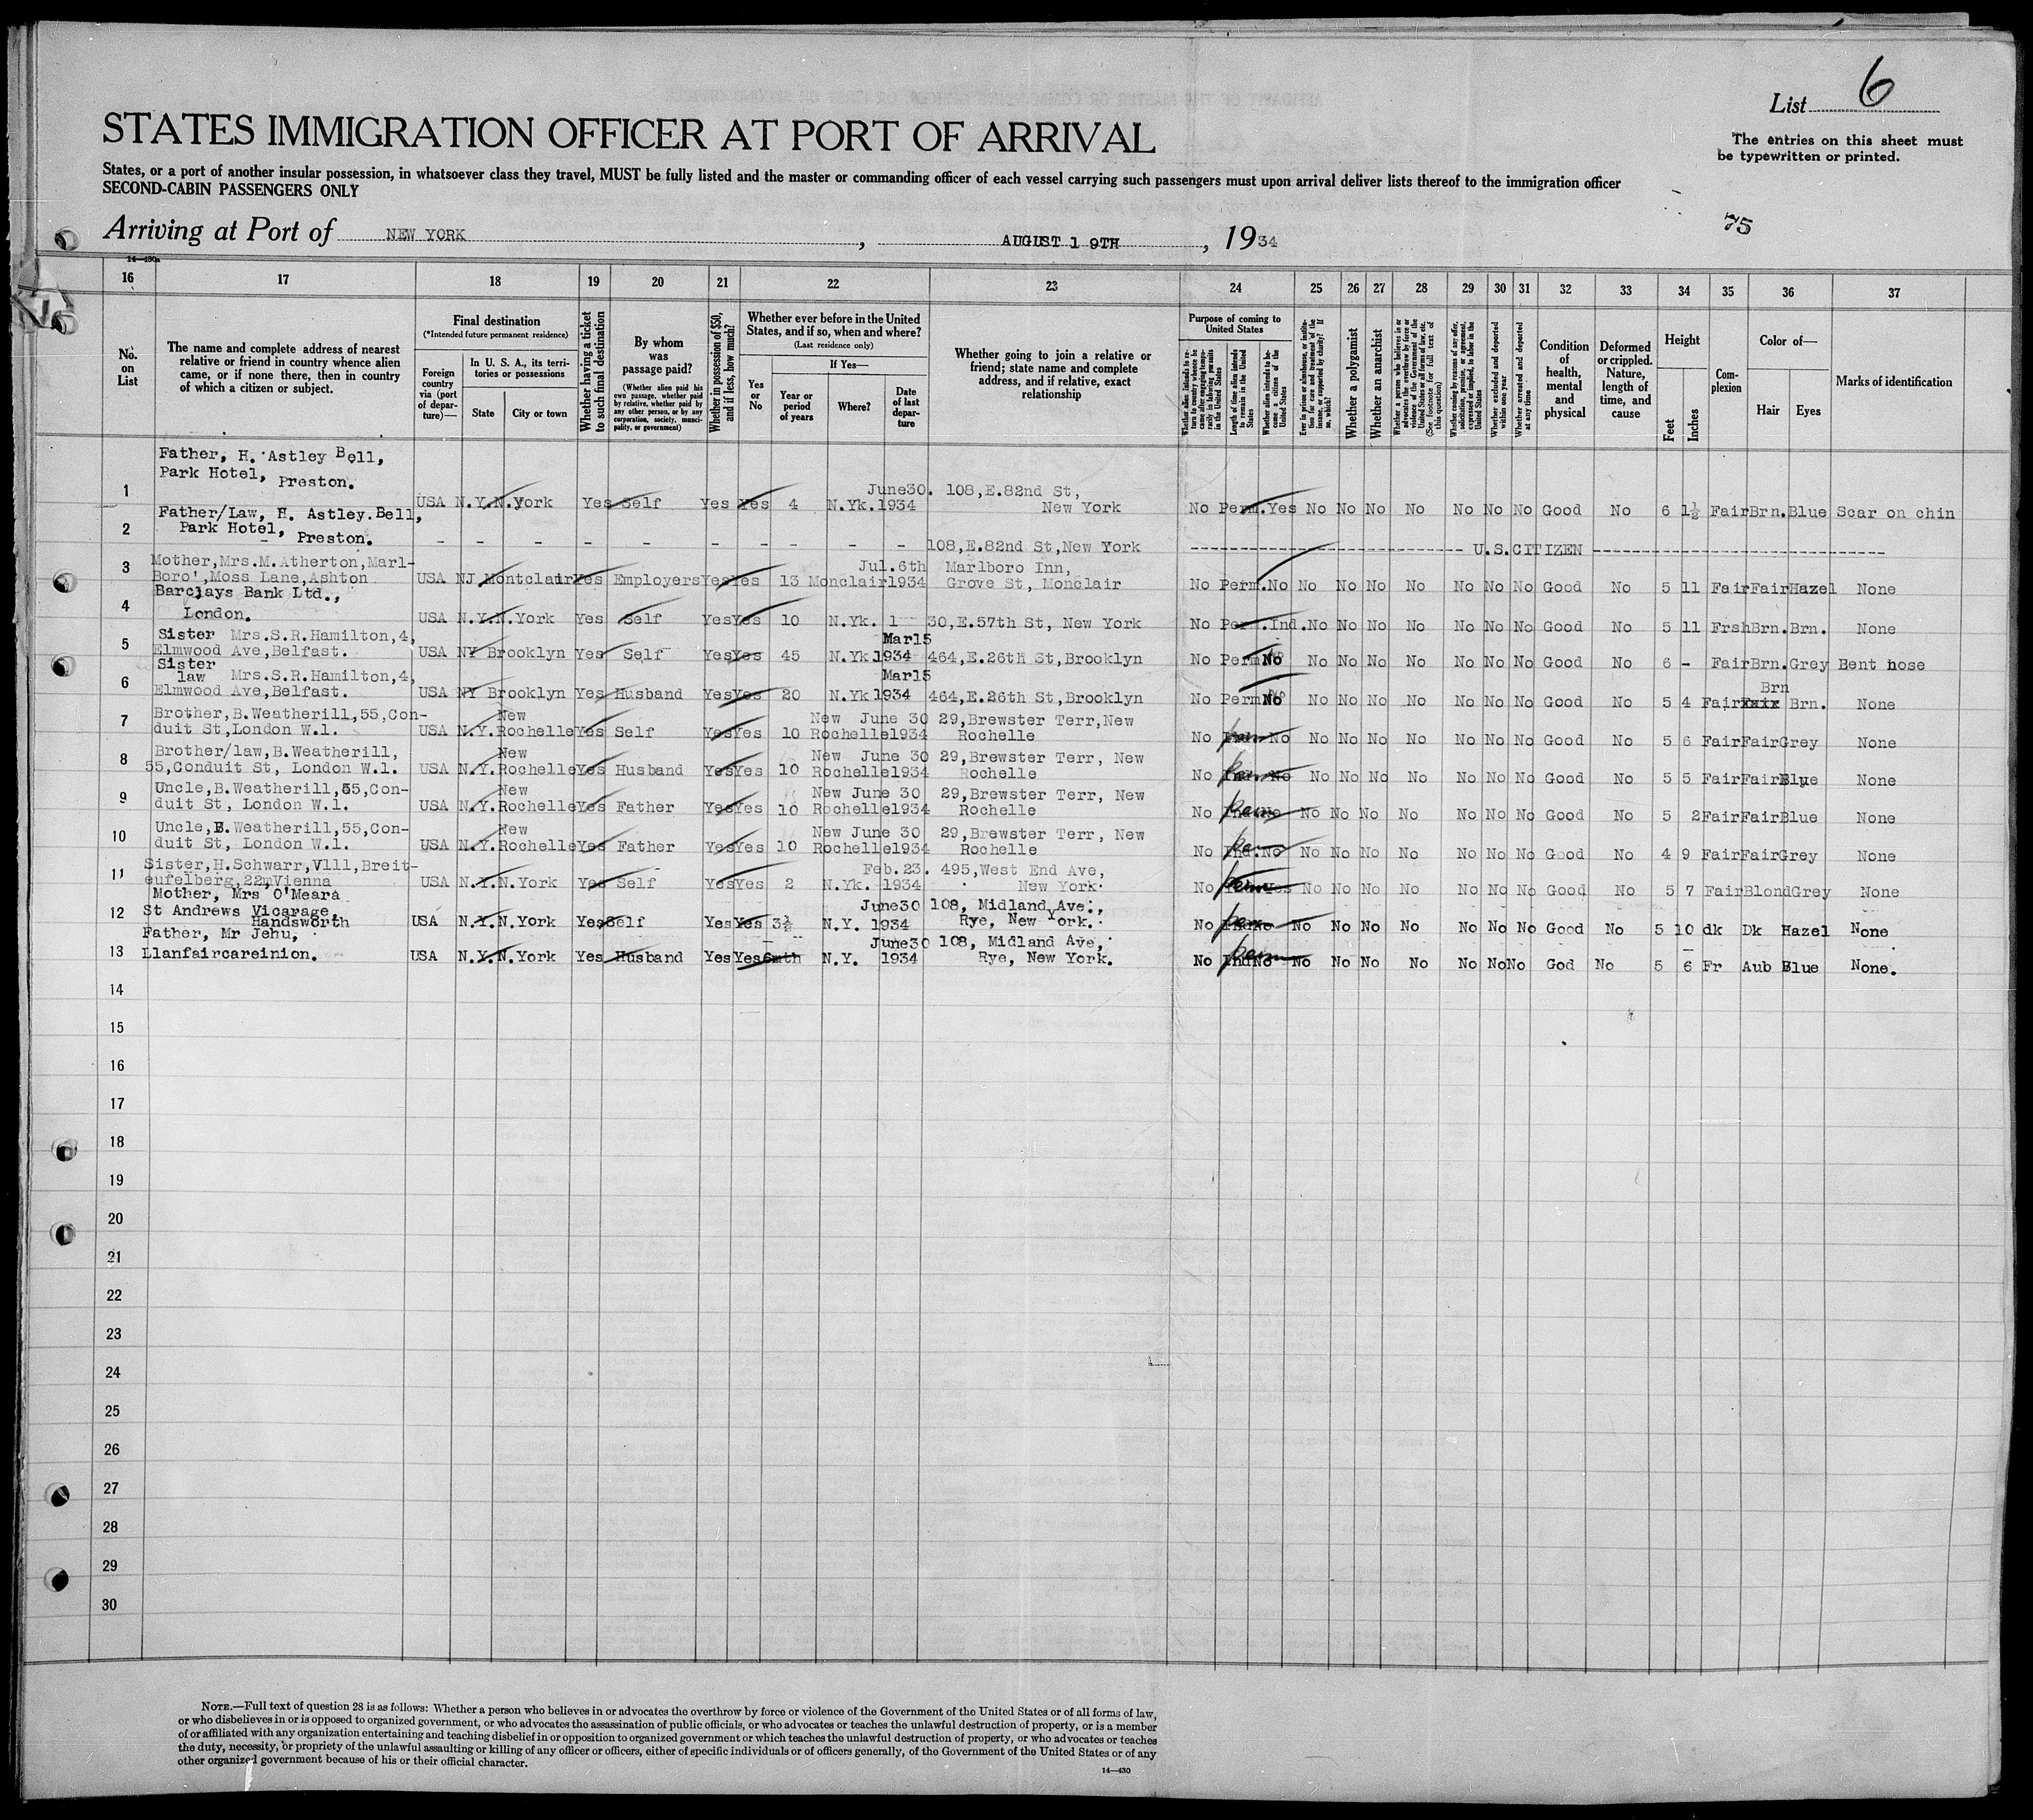 List 6
The entries on this sheet must
be typewritten or printed.
STATES IMMIGRATION OFFICER AT PORT OF ARRIVAL
States, or a port of another insular possession, in whatsoever class they travel, MUST be fully listed and the master or commanding officer of each vessel carrying such passengers must upon arrival deliver lists thereof to the immigration officer
SECOND-CABIN PASSENGERS ONLY
75
Arriving at Port of NEW YORK, AUGUST 19TH, 1934
14—430a
16 17 18 19 20 21 22 23 24 25 26 27 28 29 30 31 32 33 34 35 36 37
No. on List
The name and complete address of nearest
relative or friend in country whence alien
came, or if none there, then in country
of which a citizen or subject.
Final destination
(*Intended future permanent residence)
Foreign country via (port of departure)—
In U. S. A., its territories or possessions
State
City or town
Whether having a ticket to such final destination
By whom was passage paid?
(Whether alien paid his own passage, whether paid by relative, whether paid by any other person, or by any corporation, society, municipality, or government)
Whether in possession of $50, and if less, how much?
Whether ever before in the United States, and if so, when and where?
(Last residence only)
Yes or No
If Yes—
Year or period of years
Where?
Date of last departure
Whether going to join a relative or
friend; state name and complete
address, and if relative, exact
relationship
Purpose of coming to United States
Whether alien intends to return to country whence he came after engaging temporarily in laboring pursuits in the United States
Length of time alien intends to remain in the United States
Whether alien intends to become a citizen of the United States
Ever in prison or almshouse, or institution for care and treatment of the insane, or supported by charity? If so, which?
Whether a polygamist
Whether an anarchist
Whether a person who believes in or advocates the overthrow by force or violence of the Government of the United States or all forms of law, etc. (See footnote for full text of this question)
Whether coming by reasons of any offer, solicitation, promise, or agreement, expressed or implied, to labor in the United States
Whether excluded and deported within one year
Whether arrested and deported at any time
Condition of health, mental and physical
Deformed or crippled. Nature, length of time, and cause
Height
Feet
Inches
Complexion
Color of—
Hair
Eyes
Marks of identification
Father, H. Astley Bell,
Park Hotel, Preston.
1 USA N.Y. N.York Yes Self Yes Yes 4 N.Yk. June30. 1934 108,E.82nd St, New York No Perm. Yes No No No No No No No Good No 6 1½ Fair Brn. Blue Scar on chin
Father/Law, H. Astley.Bell,
Park Hotel, Preston.
2 - - - - - - - - - - 108,E.82nd St,New York ---- U.S.CITIZEN ----
Mother,Mrs.M.Atherton,Marl-
Boro',Moss Lane,Ashton
3 USA NJ Montclair Yes Employers Yes Yes 13 Monclair Jul.6th 1934 Marlboro Inn, Grove St, Monclair No Perm. No No No No No No No No Good No 5 11 Fair Fair Hazel None
Barclays Bank Ltd.,
London.
4 USA N.Y. N.York Yes Self Yes Yes 10 N.Yk. 1 30,E.57th St, New York No Perm. Ind. No No No No No No No Good No 5 11 Frsh Brn. Brn. None
Sister Mrs.S.R.Hamilton,4,
Elmwood Ave,Belfast.
5 USA NY Brooklyn Yes Self Yes Yes 45 N.Yk Mar15 1934 464,E.26th St,Brooklyn No Perm No No No No No No No No Good No 6 - Fair Brn. Grey Bent nose
Sister law Mrs.S.R.Hamilton,4,
Elmwood Ave,Belfast.
6 USA NY Brooklyn Yes Husband Yes Yes 20 N.Yk Mar15 1934 464,E.26th St,Brooklyn No Perm No No No No No No No No Good No 5 4 Fair Brn Brn. None
Brother,B.Weatherill,55,Con-
duit St,London W.1.
7 USA N.Y. New Rochelle Yes Self Yes Yes 10 New Rochelle June 30 1934 29,Brewster Terr,New Rochelle No Perm No No No No No No No No Good No 5 6 Fair Fair Grey None
Brother/law,B.Weatherill,
55,Conduit St, London W.1.
8 USA N.Y. New Rochelle Yes Husband Yes Yes 10 New Rochelle June 30 1934 29,Brewster Terr, New Rochelle No Per No No No No No No No No Good No 5 5 Fair Fair Blue None
Uncle,B.Weatherill,55,Con-
duit St, London W.1.
9 USA N.Y. New Rochelle Yes Father Yes Yes 10 New Rochelle June 30 1934 29,Brewster Terr, New Rochelle No Perm No No No No No No No No Good No 5 2 Fair Fair Blue None
Uncle,B.Weatherill,55,Con-
duit St, London W.1.
10 USA N.Y. New Rochelle Yes Father Yes Yes 10 New Rochelle June 30 1934 29,Brewster Terr, New Rochelle No Perm No No No No No No No No Good No 4 9 Fair Fair Grey None
Sister,H.Schwarr,V111,Breit-
eufelberg,22mVienna
11 USA N.Y. N.York Yes Self Yes Yes 2 N.Yk. Feb.23. 1934 495,West End Ave, New York. No Perm Yes No No No No No No No Good No 5 7 Fair Blond Grey None
Mother, Mrs O'Meara
St Andrews Vicarage,
Handsworth
12 USA N.Y. N.York Yes Self Yes Yes 3½ N.Y. June30 1934 108, Midland Ave., Rye, New York. No Perm No No No No No No No No Good No 5 10 dk Dk Hazel None
Father, Mr Jehu,
Llanfaircareinion.
13 USA N.Y. N.York Yes Husband Yes Yes 6mth N.Y. June30 1934 108, Midland Ave, Rye, New York. No Ind Perm No No No No No No No No God No 5 6 Fr Aub Blue None.
14
15
16
17
18
19
20
21
22
23
24
25
26
27
28
29
30
NOTE.—Full text of question 28 is as follows: Whether a person who believes in or advocates the overthrow by force or violence of the Government of the United States or of all forms of law,
or who disbelieves in or is opposed to organized government, or who advocates the assassination of public officials, or who advocates or teaches the unlawful destruction of property, or is a member
of or affiliated with any organization entertaining and teaching disbelief in or opposition to organized government or which teaches the unlawful destruction of property, or who advocates or teaches
the duty, necessity, or propriety of the unlawful assaulting or killing of any officer or officers, either of specific individuals or of officers generally, of the Government of the United States or of any
other organized government because of his or their official character.
14—430